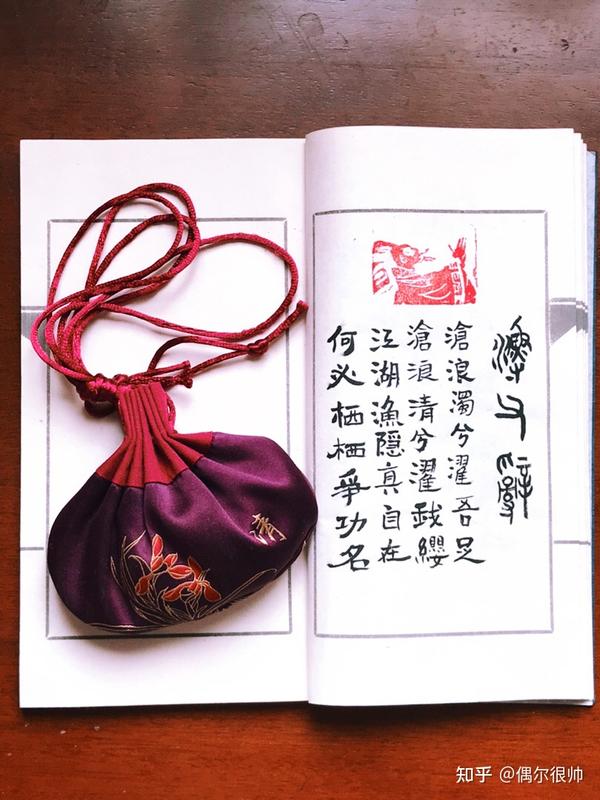 漁父辭
滄浪濁兮濯吾足
滄浪清兮濯我纓
江湖漁隱真自在
何必栖栖爭功名
清
知乎 @偶尔很帅